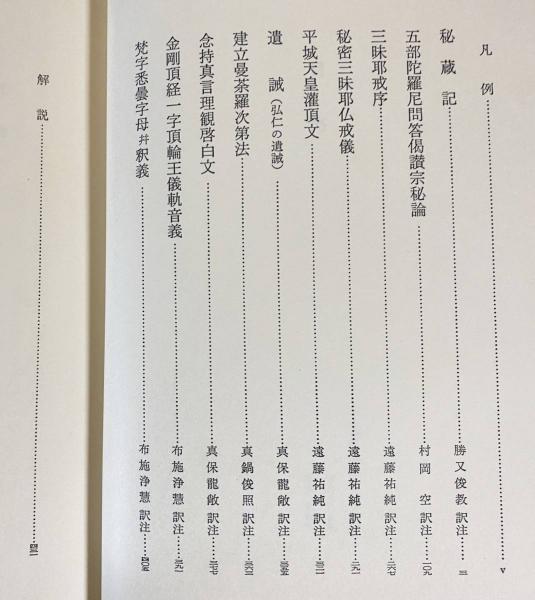 凡例……v
秘蔵記……勝又俊教 訳注……三
五部陀羅尼問答偈讃宗秘論……村岡空 訳注……一〇九
三昧耶戒序……遠藤祐純 訳注……二六七
秘密三昧耶仏戒儀……遠藤祐純 訳注……二九一
平城天皇灌頂文……遠藤祐純 訳注……三二一
遺誡（弘仁の遺誡）……真保龍敞 訳注……三五五
建立曼荼羅次第法……真鍋俊照 訳注……三六三
念持真言理観啓白文……真保龍敞 訳注……三七七
金剛頂経一字頂輪王儀軌音義……布施浄慧 訳注……三九一
梵字悉曇字母幷釈義……布施浄慧 訳注……四〇五
解説……四三一